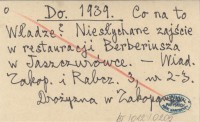 Do. 1939. Co na to
Władze? Niesłychane zajście
w restauracji Berberiusza
w Jaszczurówce. — Wiad.
Zakop. i Rabcz. 3, nr 2-3.
Drożyzna w Zakopan